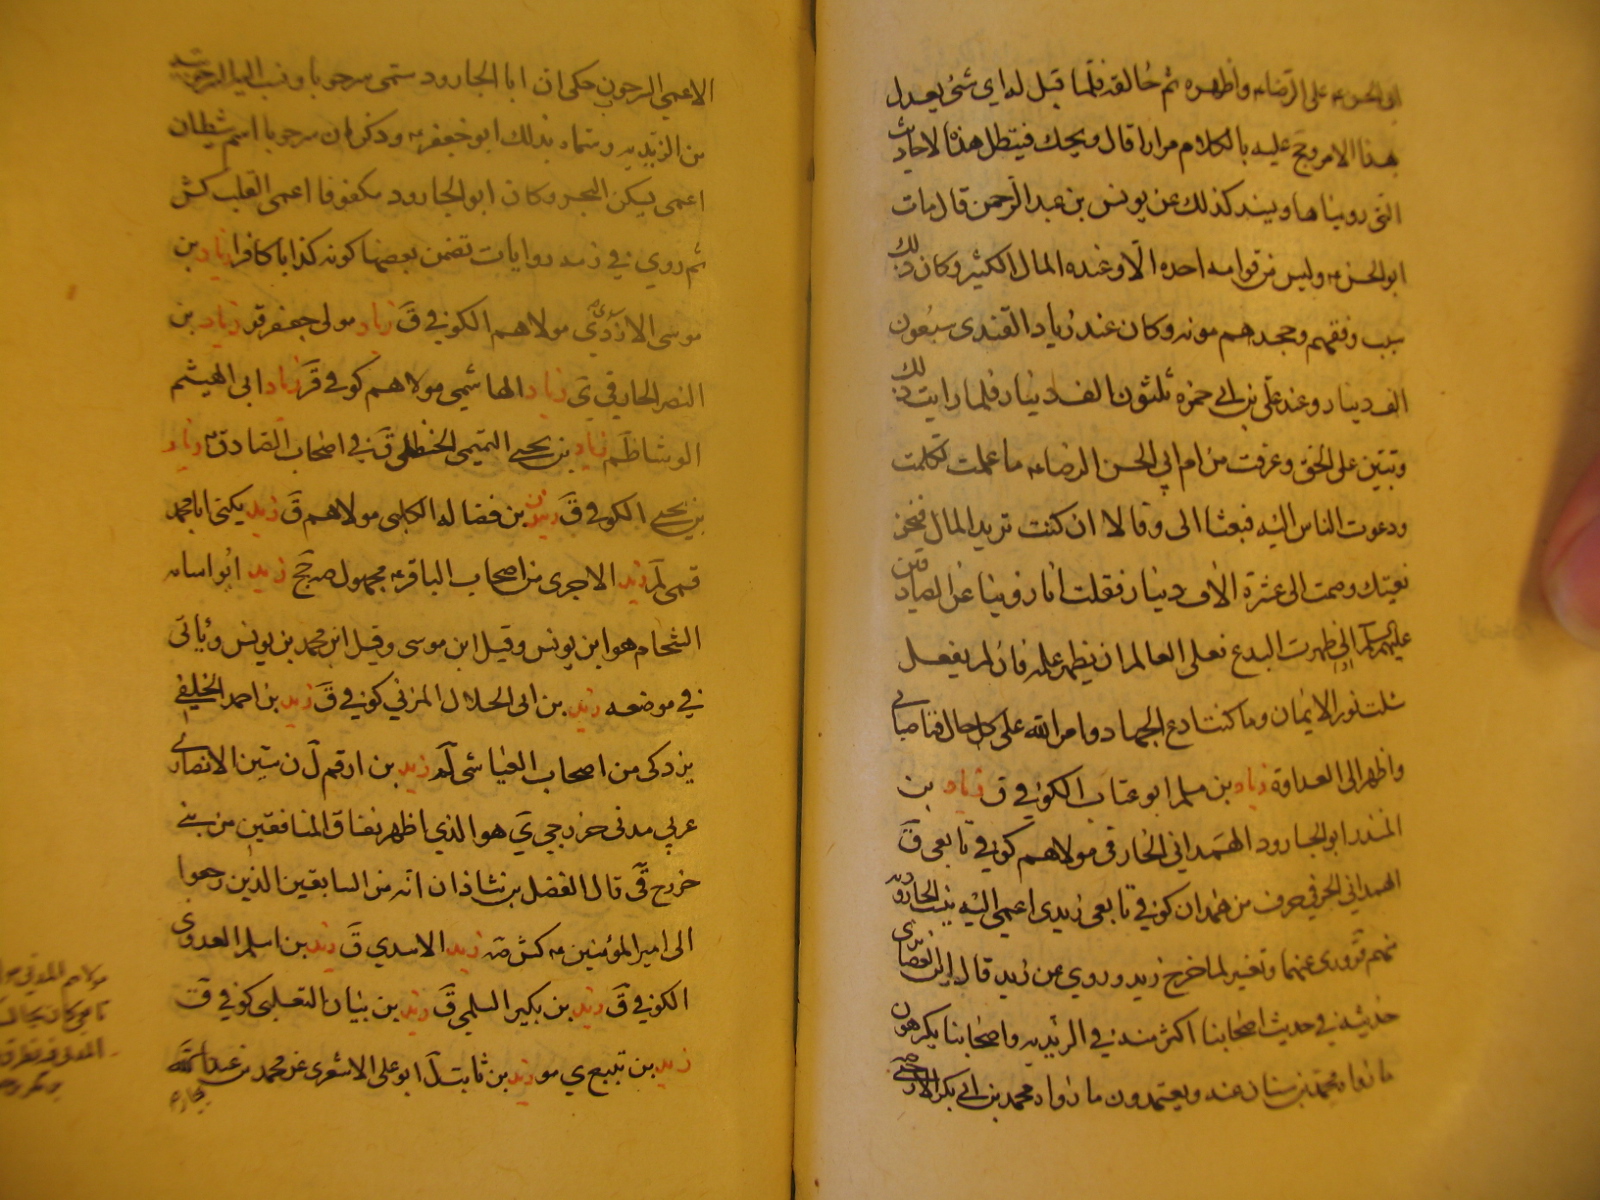 ابى الحسن ع على الرضا ع واظهره ثم خالفه فلما قيل له اى شئ يعدل
هذا الامر عليه بالكلام مرارا قال ويحك فيبطل هذه الاحاديث
التى رويناها وبسنده كذلك عن يونس بن عبد الرحمن قال مات
ابو الحسن ع وليس من قوامه احد الا وعنده المال الكثير وكان ذلك
سبب وقفهم وجحدهم موته وكان عند زياد القندى سبعون
الف دينار وعند على بن ابي حمزه ثلثون الف دينار فلما رايت ذلك
وتبين على الحق وعرفت من امر ابي الحسن الرضا ع ما عملت تكلمت
ودعوت الناس اليه فبعثا الى وقالا ان كنت تريد المال فنحن
نغنيك وضمنا الى عشرة الاف دينار فقلت انا روينا عن الصادقين
عليهم السلم اذا ظهرت البدع فعلى العالم ان يظهر علمه فان لم يفعل
سلب نور الايمان وما كنت ادع الجهاد وامر الله على كل حال فناصباني
واظهرا لى العداوة زياد بن مسلم ابو عتاب الكوفي ق زياد بن
المنذر ابو الجارود الهمداني الخارقى مولاهم كوفي تابعى ق
الهمداني الخرقي حرف من همدان كوفي تابعى زيدى اعمى اليه ينسب الجارودية
منهم قر وروى عنهما وتغير لما خرج زيد وروى عن زيد قال ابن الغضايرى
حديثه في حديث اصحابنا اكثر منه في الزيديه واصحابنا يكرهون
ما رواه محمد بن سنان عنه ويعتمدون ما رواه محمد بن ابي بكر الارجنى
الاعمى السرحوب حكى ان ابا الجارود سمى سرحوبا ونسب اليه السرحوبية
من الزيديه وسماه بذلك ابو جعفر ع وذكر ان سرحوبا اسم شيطان
اعمى يسكن البحر وكان ابو الجارود مكفوفا اعمى القلب كش
ثم روي في ذمه روايات تضمن بعضها كونه كذابا كافرا زياد بن
موسى الاسدي مولاهم الكوفي ق زياد مولى جعفر قر زياد بن
النضر الحارقي ي زياد الهاشمي مولاهم كوفي قر زياد ابى الهيثم
الوشا ظم زياد بن يحيى التميمى الحنظلى ق في اصحاب الصادق ع زياد
بن يحيى الكوفي ق زيدان بن فضاله الكلبى مولاهم ق زيد يكنى ابا محمد
قمى لم زيد الاجرى من اصحاب الباقر ع مجهول صه جخ زيد ابو اسامه
الشحام هو ابن يونس وقيل ابن موسى وقيل ابن محمد بن يونس وياتى
في موضعه زيد بن ابى الحلال المزني كوفي ق زيد بن احمد الخلقي
يزدكى من اصحاب العياشى لم زيد بن ارقم ل ن سين الانصارى
عربي مدنى خزرجي ي هو الذي اظهر نفاق المنافقين من بني
خزرج قي قال الفضل بن شاذان انه من السابقين الذين رجعوا
الى امير المؤمنين ع كش صه زيد الاسدي ق زيد بن اسلم العدوى
الكوفي ق زيد بن بكير السلمي ق زيد بن بيان التغلبى كوفي ق
زيد بن تبيع ي مو زيد بن ثابت ل ابو على الاشعرى عن محمد بن عبد الجبار
مولاهم المدني